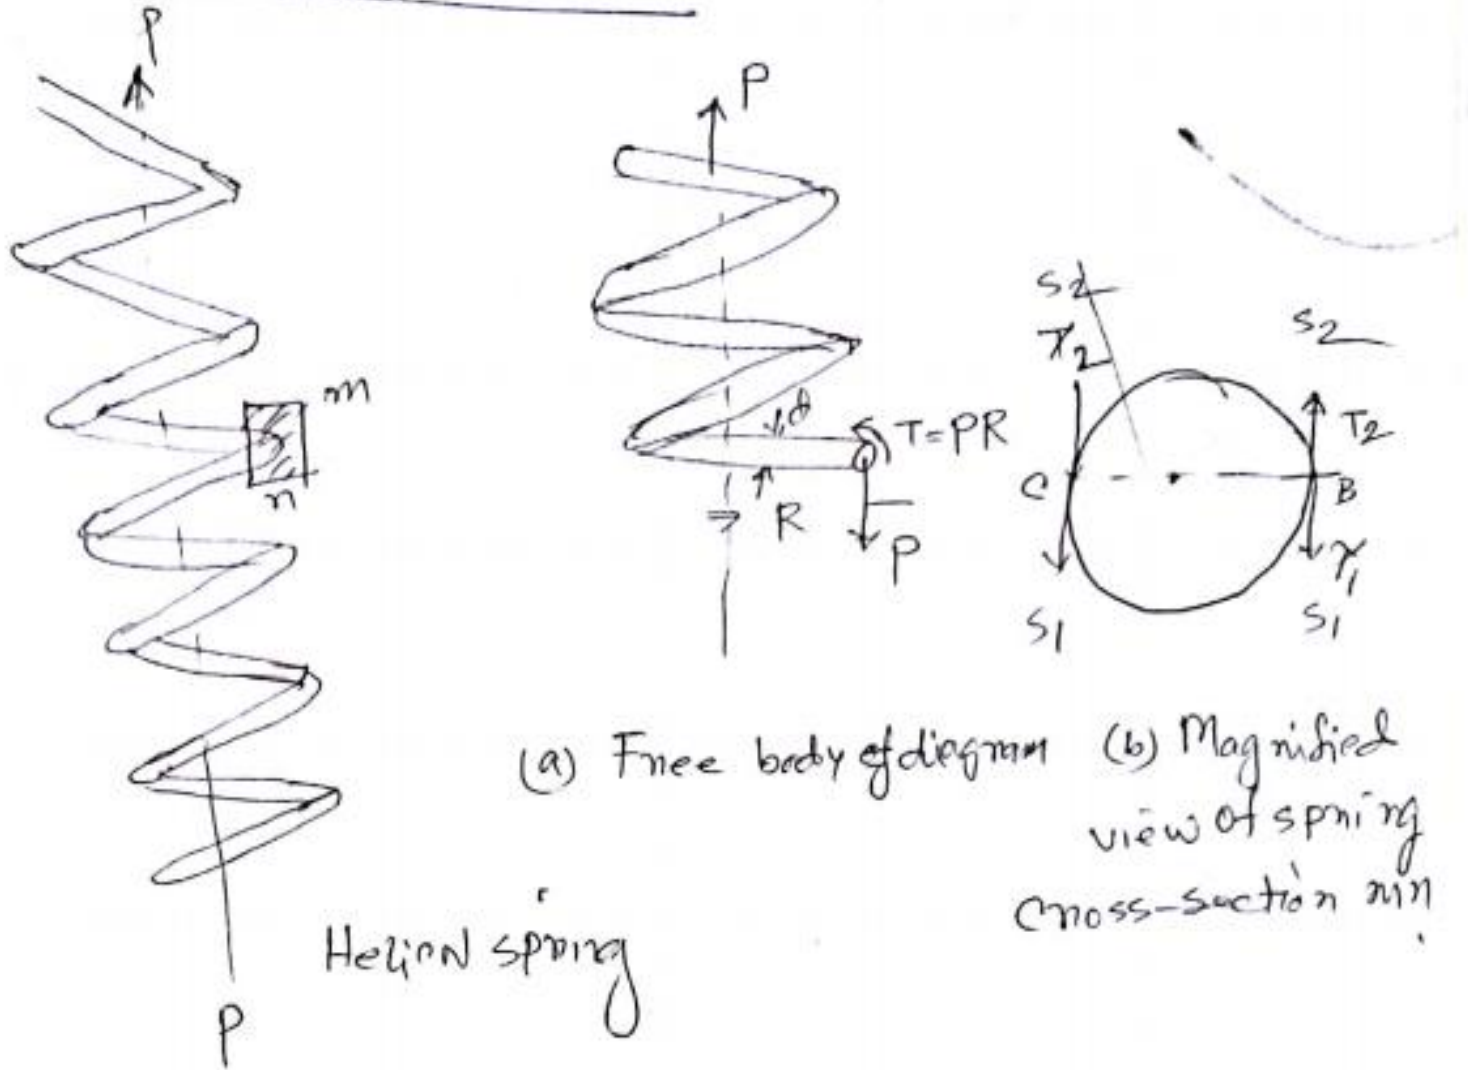 P
m
n
P
Helical spring
P
d
T=PR
R
P
(a) Free body of diagram
S2
τ2
S2
T2
C
B
τ1
S1
S1
(b) Magnified
view of spring
cross-suction mn